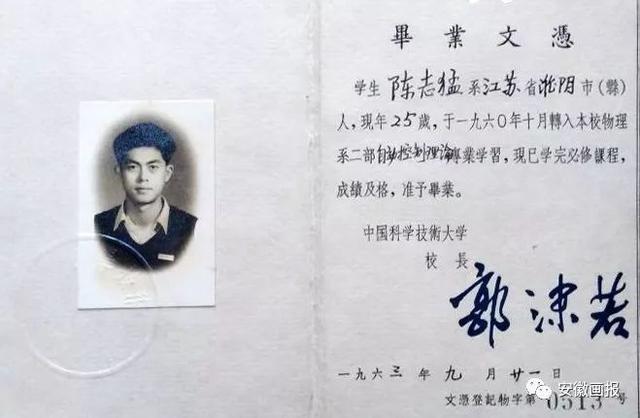 畢業文憑
学生陈志猛系江苏省淮阴市(縣)
人，現年25歲，于一九六〇年十月轉入本校物理
系二部自动控制理论專業学習，現已学完必修課程，
成績及格，准予畢業。
中国科学技術大学
校長
郭沫若
一九六三年九月廿一日
文憑登記物字第0513号
安徽画报